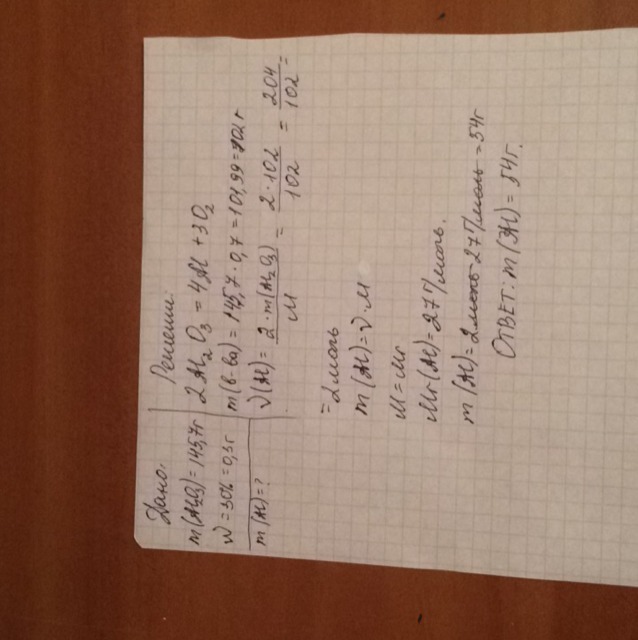 Дано:
m(Al₂O₃)=145,7г
W=30%=0,3г
m(Al)=?
Решение:
2Al₂O₃=4Al+3O₂
m(в-ва)=145,7·0,7=101,99=102г
ν(Al)=2·m(Al₂O₃)/M=2·102/102=204/102=
=2моль
m(Al)=ν·M
M=Mr
Mr(Al)=27г/моль.
m(Al)=2моль·27г/моль=54г
Ответ: m(Al)=54г.